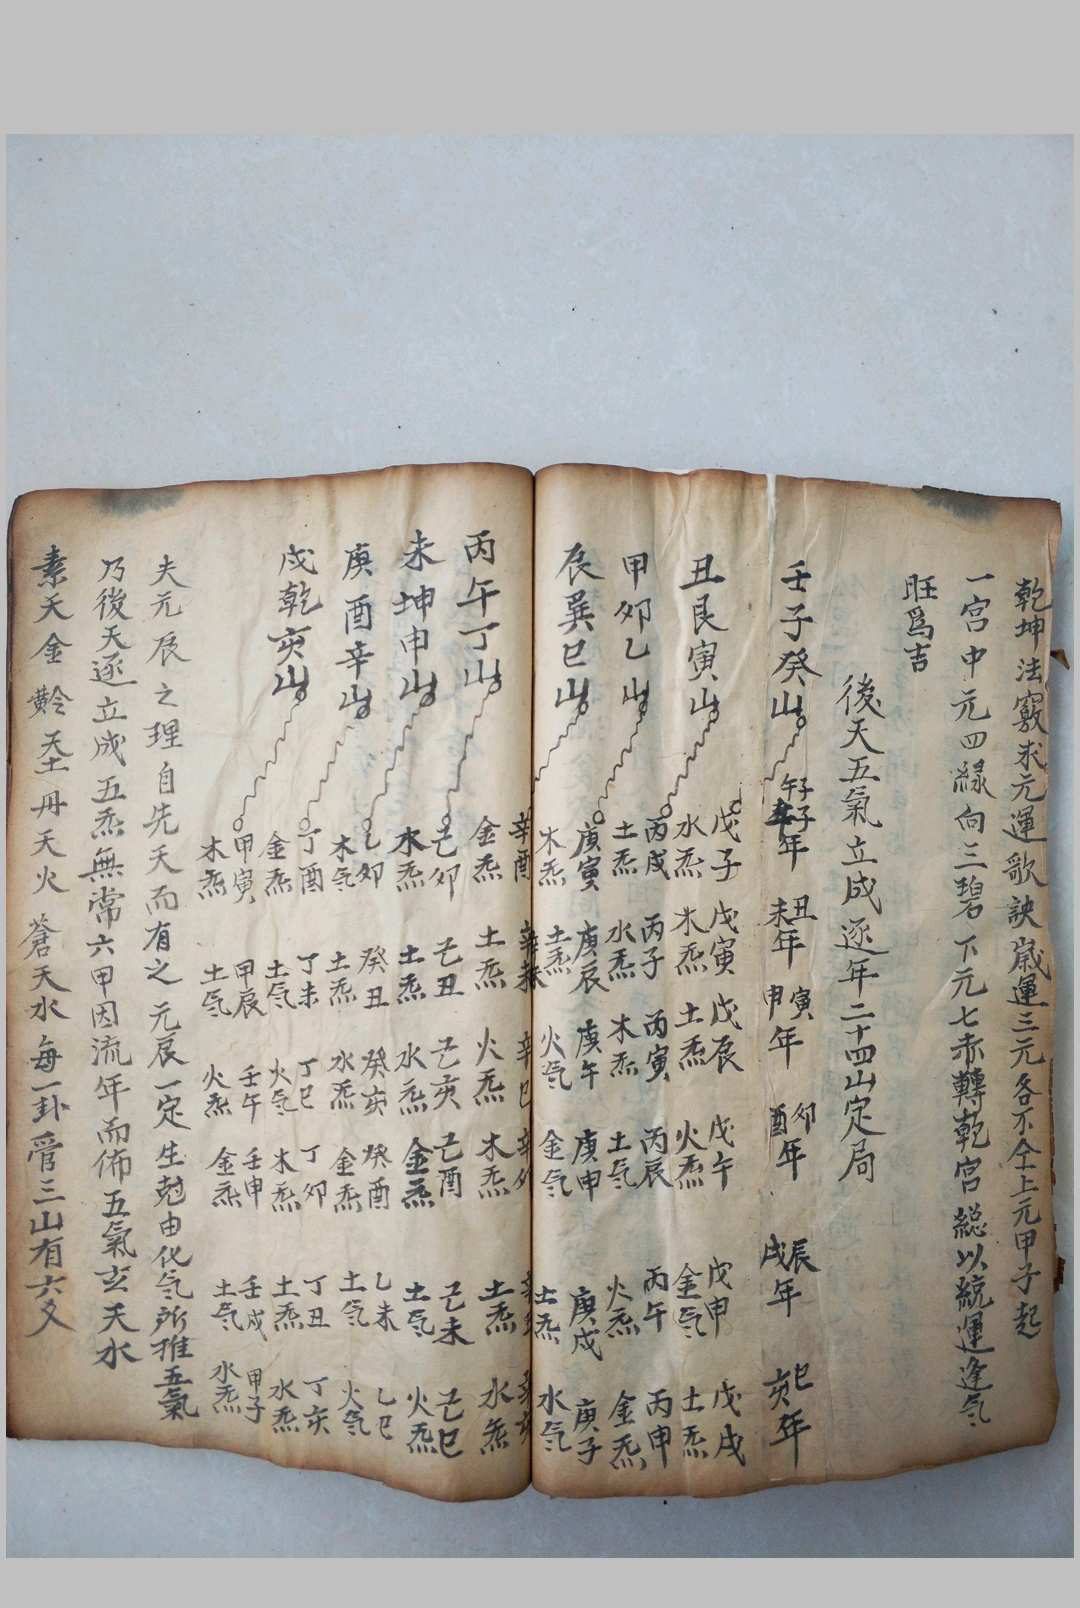 乾坤法竅求元運歌訣歲運三元各不仝上元甲子起
一宮中元四緑向三碧下元七赤轉乾宮總以統運逢炁
旺爲吉
後天五氣立成逐年二十四山定局
壬子癸山 子午年 丑未年 寅申年 卯酉年 辰戌年 巳亥年
丑艮寅山 戊子 戊寅 戊辰 戊午 戊申 戊戌
水炁 木炁 土炁 火炁 金气 土炁
甲卯乙山 丙戌 丙子 丙寅 丙辰 丙午 丙申
土炁 水炁 木炁 土气 火炁 金炁
辰巽巳山 庚寅 庚辰 庚午 庚申 庚戌 庚子
木炁 土炁 火气 金气 土炁 水气
辛酉 辛未 辛巳 辛卯
丙午丁山 金炁 土炁 火炁 木炁 土炁 水炁
未坤申山 己卯 己丑 己亥 己酉 己未 己巳
水炁 土炁 水炁 金炁 土气 火炁
庚酉辛山 乙卯 癸丑 癸亥 癸酉 乙未 乙巳
木气 土炁 水炁 金炁 土气 火气
戌乾亥山 丁酉 丁未 丁巳 丁卯 丁丑 丁亥
金炁 土气 火气 木炁 土炁 水炁
甲寅 甲辰 壬午 壬申 壬戌 甲子
木炁 土气 火炁 金炁 土气 水炁
夫元辰之理自先天而有之元辰一定生尅由化气所推五氣
乃後天逐立成五炁無常六甲因流年而佈五氣玄天水
素天金黅天土丹天火蒼天水每一卦管三山有六爻